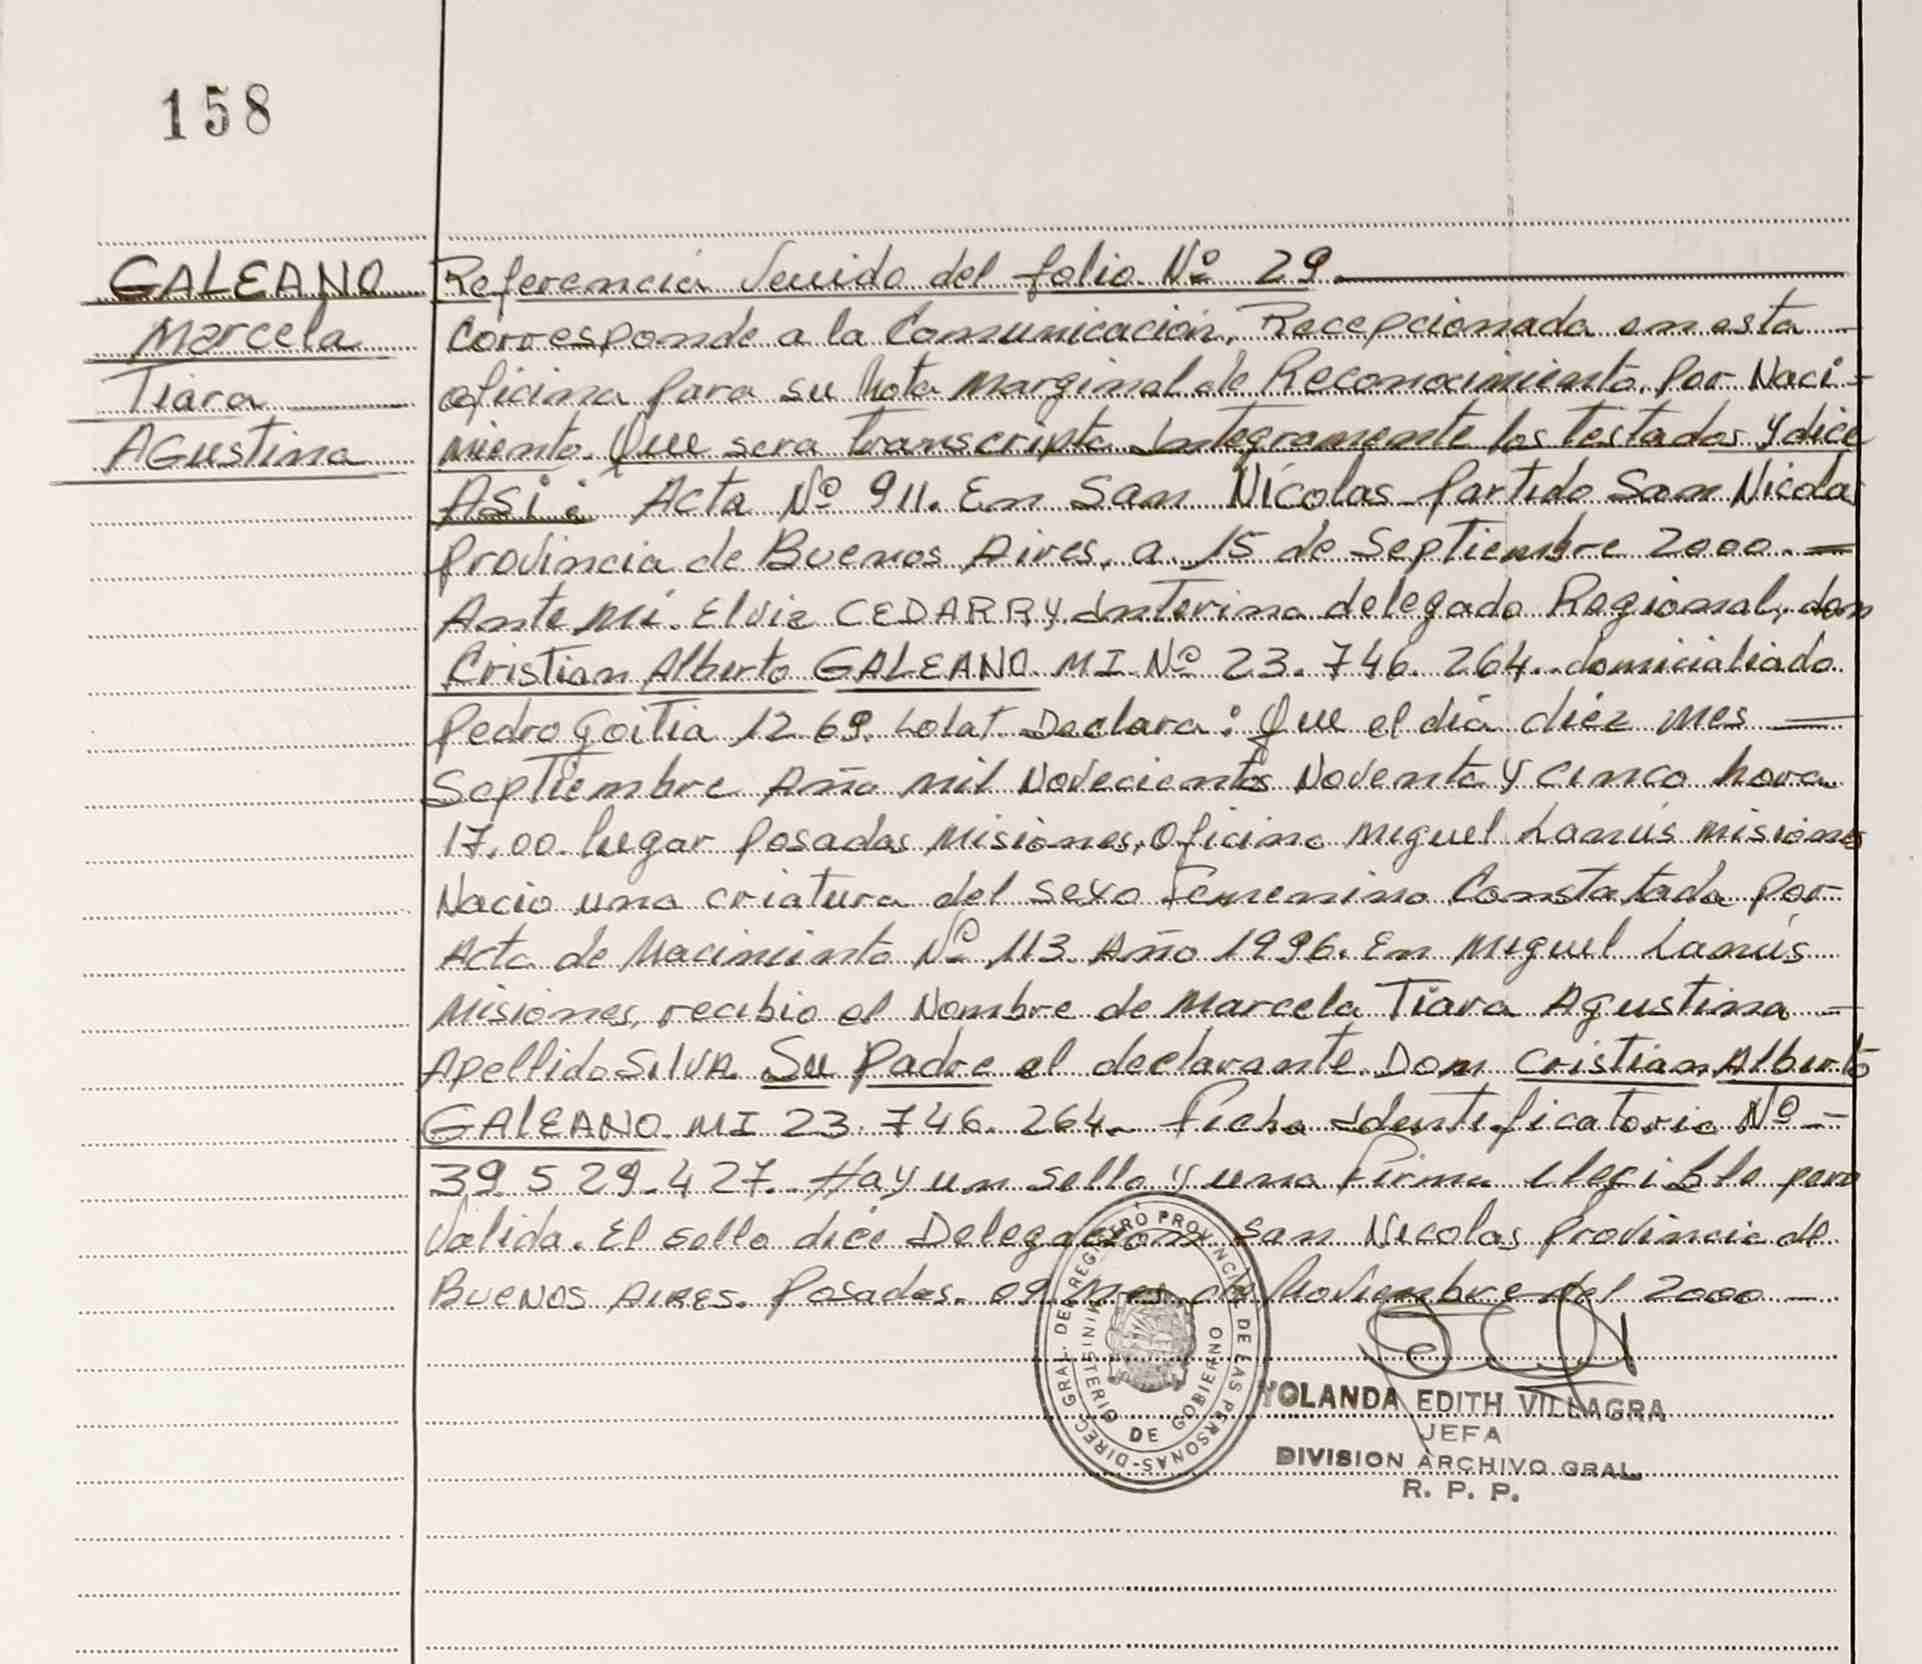 158
GALEANO
Marcela
Tiara
Agustina
Referencia Venido del folio Nº 29.
Corresponde a la Comunicación, Recepcionada en esta
oficina para su Nota Marginal de Reconocimiento, por Naci-
miento. Que sera transcripta Integramente los testados y dice
ASi: Acta Nº 911. En San Nicolas partido San Nicolas
provincia de Buenos Aires, a 15 de Septiembre 2000.
Ante Mi. Elvie CEDARRY Interina delegado Regional, don
Cristian Alberto GALEANO MI Nº 23.746.264. domicialiado
Pedro Goitia 1269. Declara: Que el día diez mes
Septiembre Año mil Novecientos Noventa y cinco hora
17,00 lugar Posadas Misiones, Oficina Miguel Lanús Misiones
Nacio una criatura del sexo Femenino Constatada por
Acta de Nacimiento Nº 113 Año 1996. En Miguel Lanús
Misiones, recibio el Nombre de Marcela Tiara Agustina -
Apellido SILVA Su Padre el declarante. Don Cristian Alberto
GALEANO MI 23.746.264. Ficha Identificatoria Nº -
39.529.427. Hay un sello y una Firma elegible pero
Valida. El sello dice Delegacion San Nicolas provincia de
BUENOS AIRES. Posadas, 09 mes de Noviembre del 2000 -
DIREC. GRAL. DEL REGISTRO PROVINCIAL DE LAS PERSONAS-
MINISTERIO DE GOBIERNO
YOLANDA EDITH VILLAGRA
JEFA
DIVISION ARCHIVO GRAL.
R. P. P.